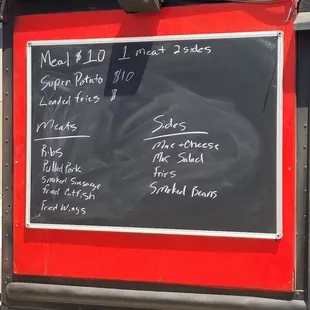 Meal $10 1 meat 2 sides
Super Potato $10
Loaded fries $
Meats
Sides
Ribs
Pulled Pork
Smoked Sausage
fried Catfish
Fried Wings
Mac + Cheese
Mac Salad
Fries
Smoked Beans